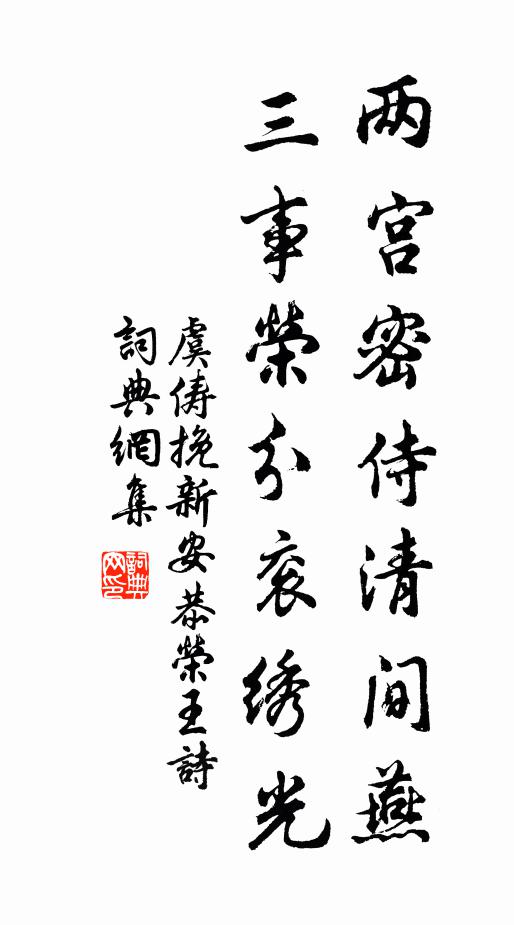 两宫密侍清间燕
三事榮分衮绣光
虞俦挽新安恭榮王詩
詞典網集
詞典网印